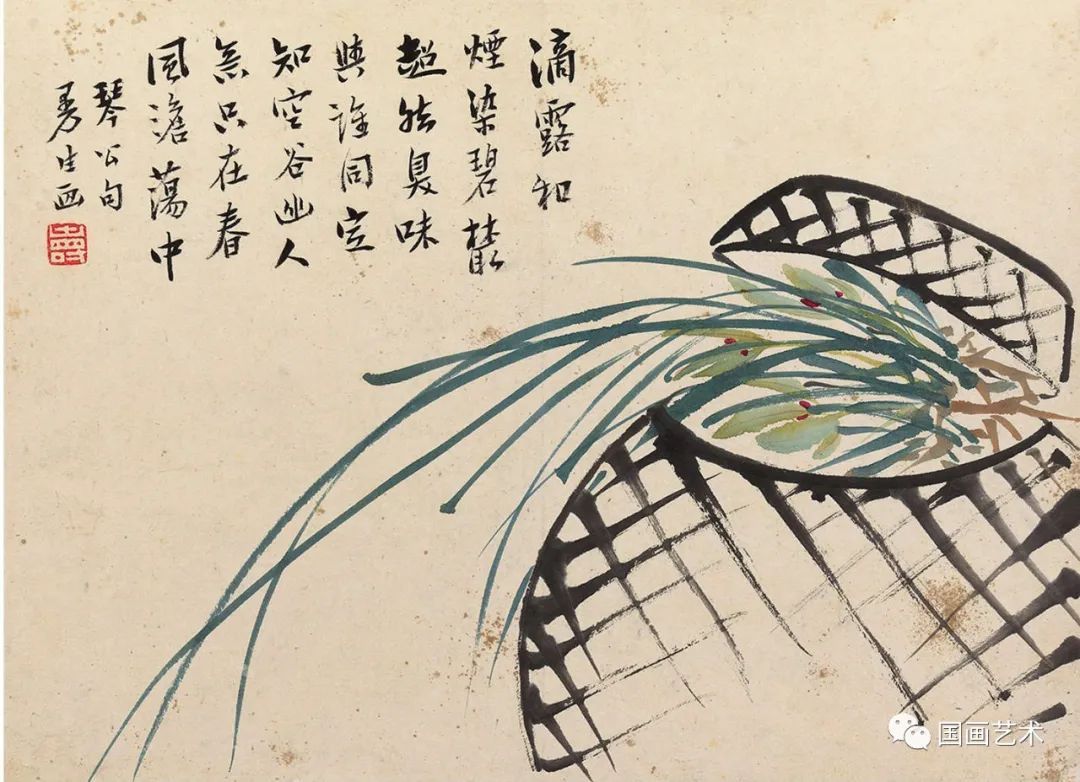 滴露和
煙染碧叢
超然臭味
與誰同定
知空谷幽人
意只在春
風澹蕩中
琴公句
生画
国画艺术